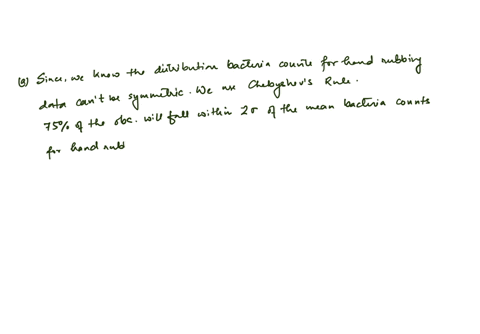 (a) Since, we know the distribution bacteria counts for hand rubbing
data can't be symmetric. We use Chebyshev's Rule.
75% of the obs. will fall within 2σ of the mean bacteria counts
for hand rub